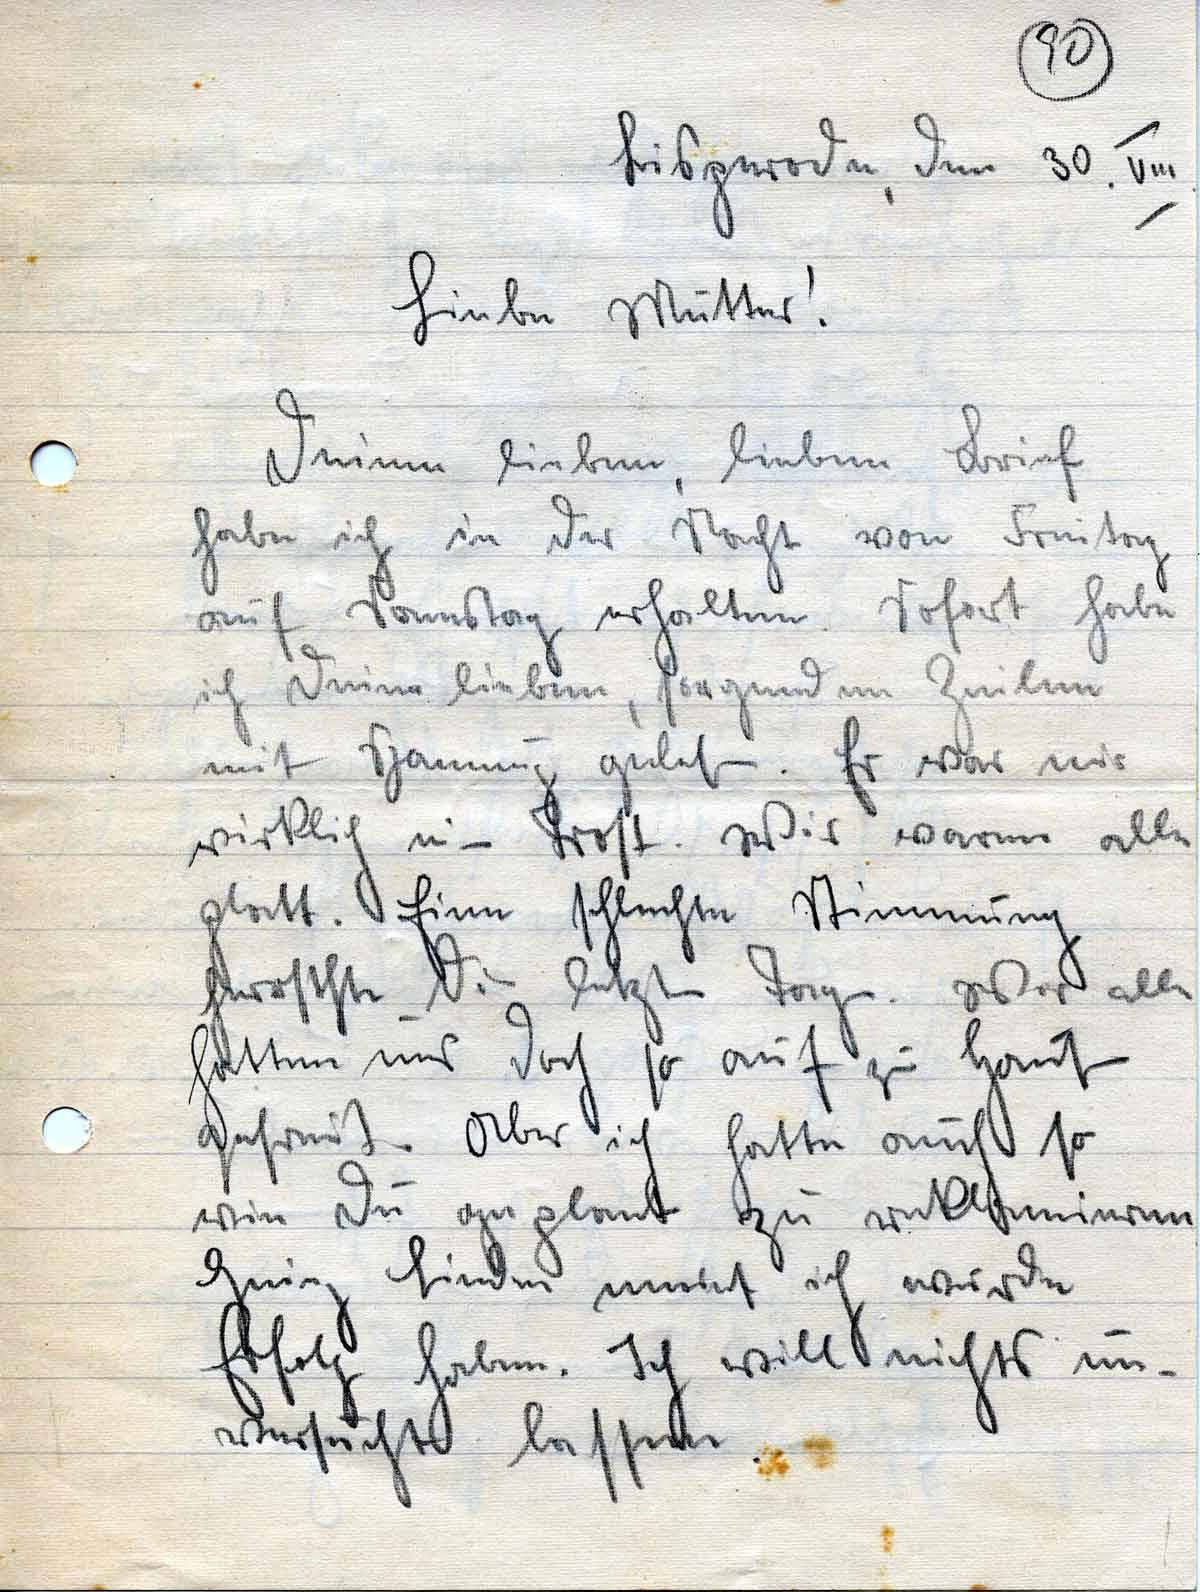 90
Bisperode, den 30. VIII
Liebe Mutter!
Deinen lieben, lieben Brief
habe ich in der Nacht von Freitag
auf Samstag erhalten. Sofort habe
ich Deine lieben, sorgenden Zeilen
mit Spannung gelesen. Er war mir
wirklich ein Trost. Wir waren alle
platt. Eine schlechte Stimmung
herrschte die letzten Tage. Wir alle
hatten uns doch so auf zu Hause
gefreut. Aber ich hatte auch so
wie Du geplant zu reklamieren
Heinz Linden meint ich würde
Erfolg haben. Ich will nichts un-
versucht lassen.